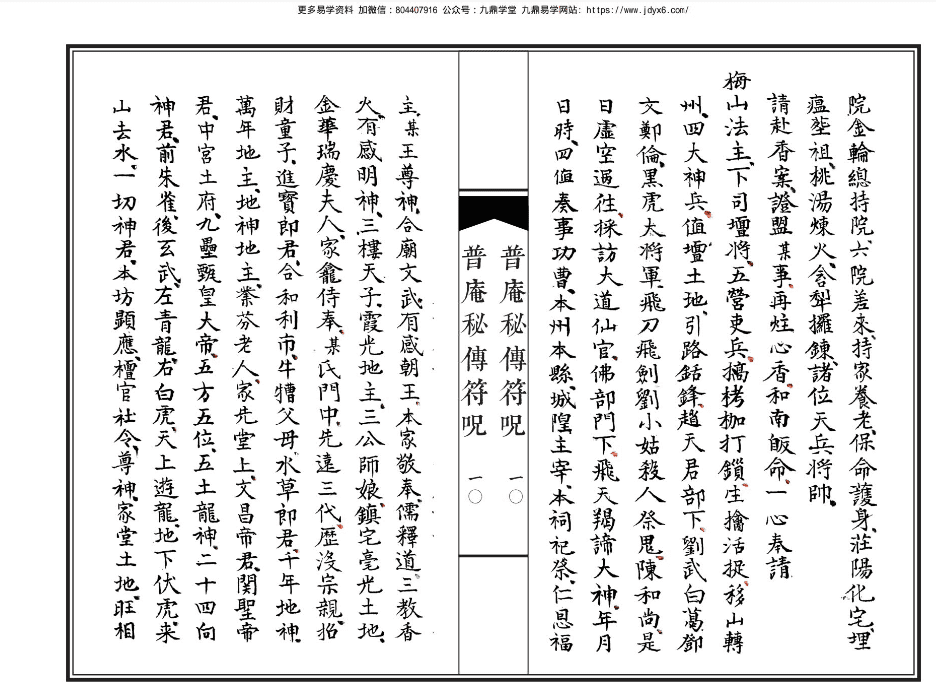 更多易学资料 加微信：804407916 公众号：九鼎学堂 九鼎易学网站：https://www.jdyx6.com/
院金輪總持院、六院差來、持家養老、保命護身、莊陽化宅、埋
瘟塟祖、桃湯煉火、含犁攞鍊、諸位天兵將帥、
請赴香案、證盟某事、再炷心香、和南皈命、一心奉請
梅山法主、下司壇將、五營吏兵、搞栲枷打鎖、生擒活捉、移山轉
州、四大神兵、值壇土地、引路銛鋒、趙天君部下、劉武白葛鄧
文鄭倫、黑虎大將軍、飛刀飛劍劉小姑、殺人祭鬼、陳和尚、是
日虛空過往、採訪大道仙官、佛部門下、飛天羯諦大神、年月
日時、四值奏事功曹、本州本縣、城隍主宰、本祠祀祭、仁恩福
普庵秘傳符呪 一〇
普庵秘傳符呪 一〇
主、某王尊神、合廟文武、有感朝王、本家敬奉、儒釋道三教香
火、有感明神、三樓天子、霞光地主、三公師娘、鎮宅毫光土地、
金華瑞慶夫人、家龕侍奉、某氏門中、先遠三代、歷沒宗親、招
財童子、進寳郎君、合和利市、牛犢父母、水草郎君、千年地神、
萬年地主、地神地主、業芬老人、家先堂上、文昌帝君、関聖帝
君、中宮土府、九壘甄皇大帝、五方五位、五土龍神、二十四向
神君、前朱雀、後玄武、左青龍、右白虎、天上遊龍、地下伏虎、来
山去水、一切神君、本坊顯應、檀官社令、尊神、家堂土地、旺相